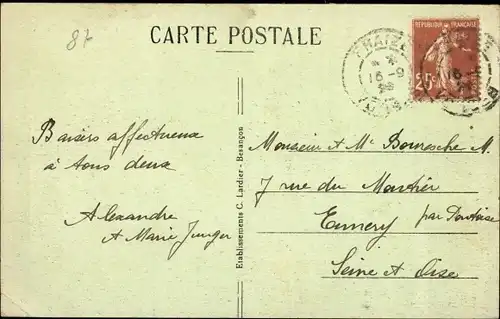 87
CARTE POSTALE
25c
16-9
Baisers affectueux
à tous deux
Alexandre
et Marie Junger
Etablissements C. Lardier - Besançon
Monsieur et Me Bouresche M.
7 rue du Moutier
Ennery par Pontoise
Seine et Oise